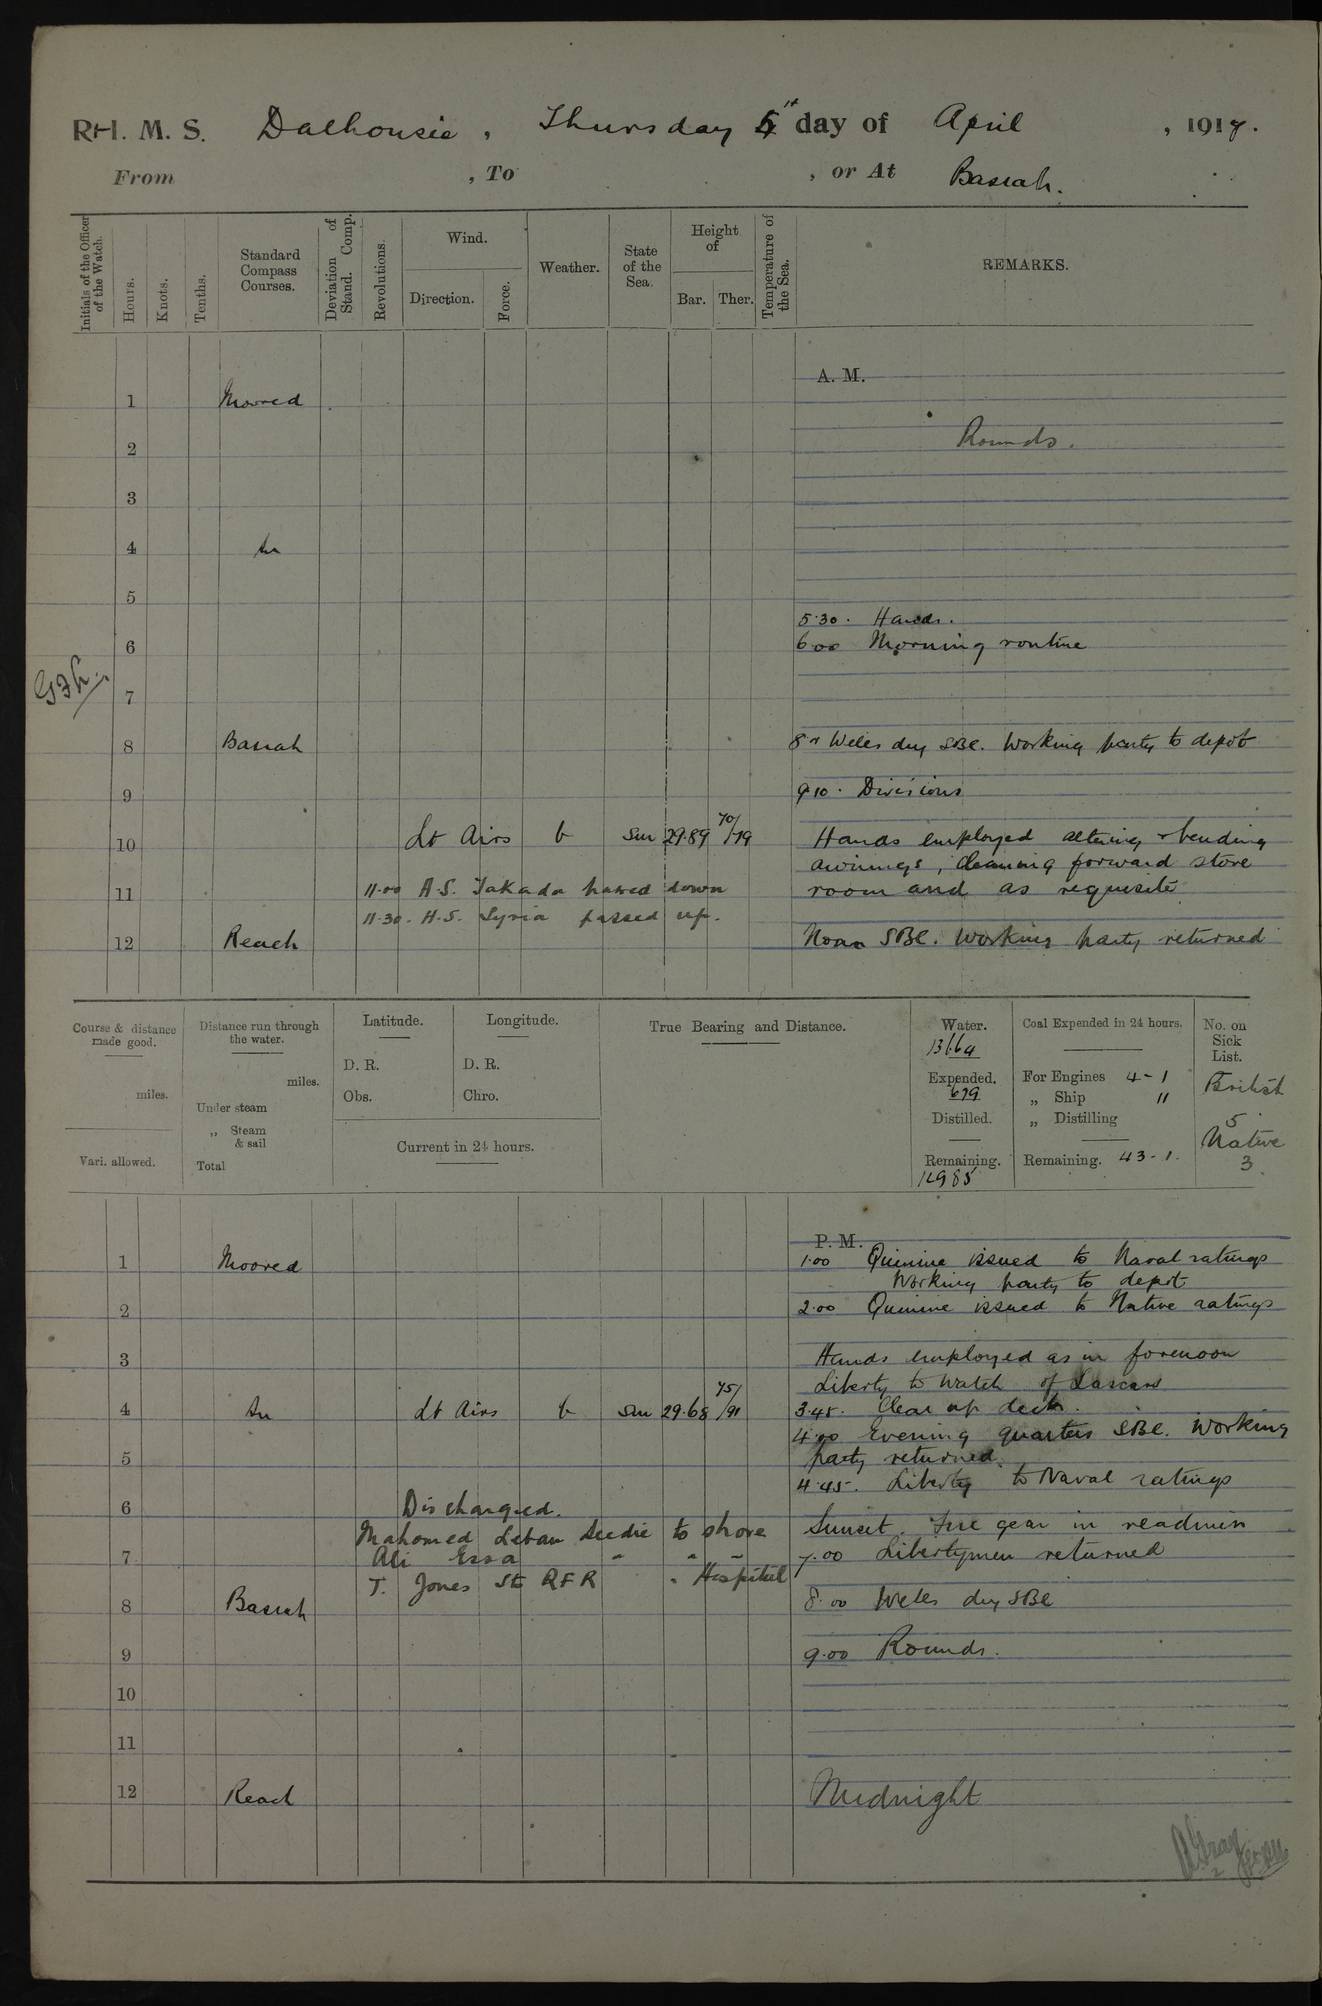 R.I.M.S. Dalhousie, Thursday 5th day of April, 1917.
From , To , or At Basrah.
Initials of the Officer of the Watch.
Hours.
Knots.
Tenths.
Standard Compass Courses.
Deviation of Stand. Comp.
Revolutions.
Wind.
Direction.
Force.
Weather.
State of the Sea.
Height of
Bar.
Ther.
Temperature of the Sea.
REMARKS.
A. M.
1 Moored
2 Rounds.
3
4 In
5
5.30. Hands.
6 6.00 Morning routine
7
8 Basrah 8.0 Weles duy SBC. Working party to depôt
9 9.10. Divisions
10 Lt Airs b Sm 29.89 70/79 Hands employed altering & bending
awnings, cleaning forward store
11 11.00 H.S. Takada passed down room and as requisite
11.30. H.S. Syria passed up.
12 Reach Noon SBC. Working party returned
Course & distance made good.
miles.
Vari. allowed.
Distance run through the water.
miles.
Under steam
„ Steam & sail
Total
Latitude.
D. R.
Obs.
Longitude.
D. R.
Chro.
Current in 24 hours.
True Bearing and Distance.
Water.
13664
Expended.
679
Distilled.
Remaining.
12985
Coal Expended in 24 hours.
For Engines 4-1
„ Ship "
„ Distilling
Remaining. 43-1.
No. on Sick List.
British
5
Native
3
P. M.
1 Moored 1.00 Quinine issued to Naval ratings
Working party to depôt
2 2.00 Quinine issued to Native ratings
3 Hands employed as in forenoon
Liberty to Watch of Lascars
4 In Lt Airs b Sm 29.68 75/91 3.45. Clear up decks.
4.00 Evening quarters SBC. Working
5 party returned.
4.45. Liberty to Naval ratings
6 Discharged. Sunset. Fire gear in readiness
Mahomed Leban Seedie to shore
7 Ali Essa " " " 7.00 Libertymen returned
T. Jones St RFR " Hospital
8 Basrah 8.00 Weles duy SBC
9 9.00 Rounds.
10
11
12 Reach Midnight